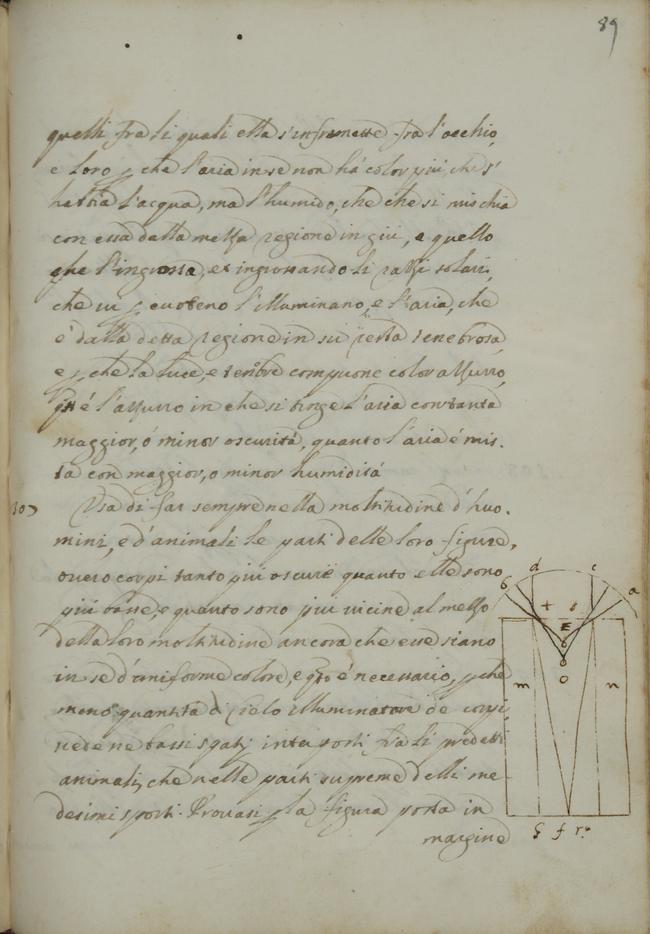 89
quelli fra li quali ella s'inframette fra l'occhio,
e loro, che l'aria in se non hà color più, che s'
habbia l'acqua, ma l'humido, che che si mischia
con essa dalla mezza regione in giù, e quello
che l'ingrossa, et ingrossando li razzi solari,
che vi percuoteno l'illuminano, e l'aria, che
è dalla detta regione in sù resta tenebrosa,
e, che la luce, e tenebre compone color azzurro,
è l'azzurro in che si tinge l'aria con tanta
maggior, ò minor oscurità, quanto l'aria é mis-
ta con maggior, o minor humidità
107
Usa di far sempre nella moltitudine d'huo-
mini, e d'animali le parti delle loro figure,
overo corpi tanto più oscure quanto elle sono
più basse, e quanto sono più vicine al mezzo
della loro moltitudine ancora che esse siano
in se d'uniforme colore, e qto é necessario, perche
meno quantità di cielo illuminatore de corpi
vede ne bassi spatij interposti fra li predetti
animali, che nelle parti supreme delli me-
desimi spatij. Provasi p la figura posta in
margine
b d c a
E
o
m n
g f r